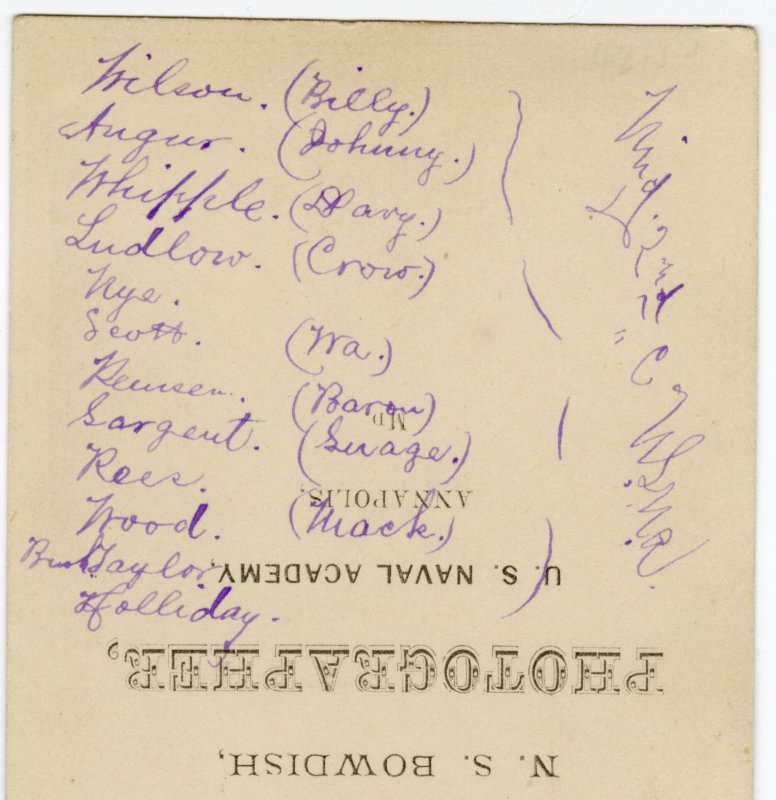 Wilson. (Billy.)
Angur. (Johnny.)
Whipple. (Davy.)
Ludlow. (Crow.)
Nye.
Scott. (Wa.)
Remsen. (Baron)
Sargent. (Suage.)
Rees.
Wood. (Mack.)
Taylor.
Holliday.
Mid.
N. S. BOWDISH,
PHOTOGRAPHER,
U. S. NAVAL ACADEMY,
ANNAPOLIS,
MD.